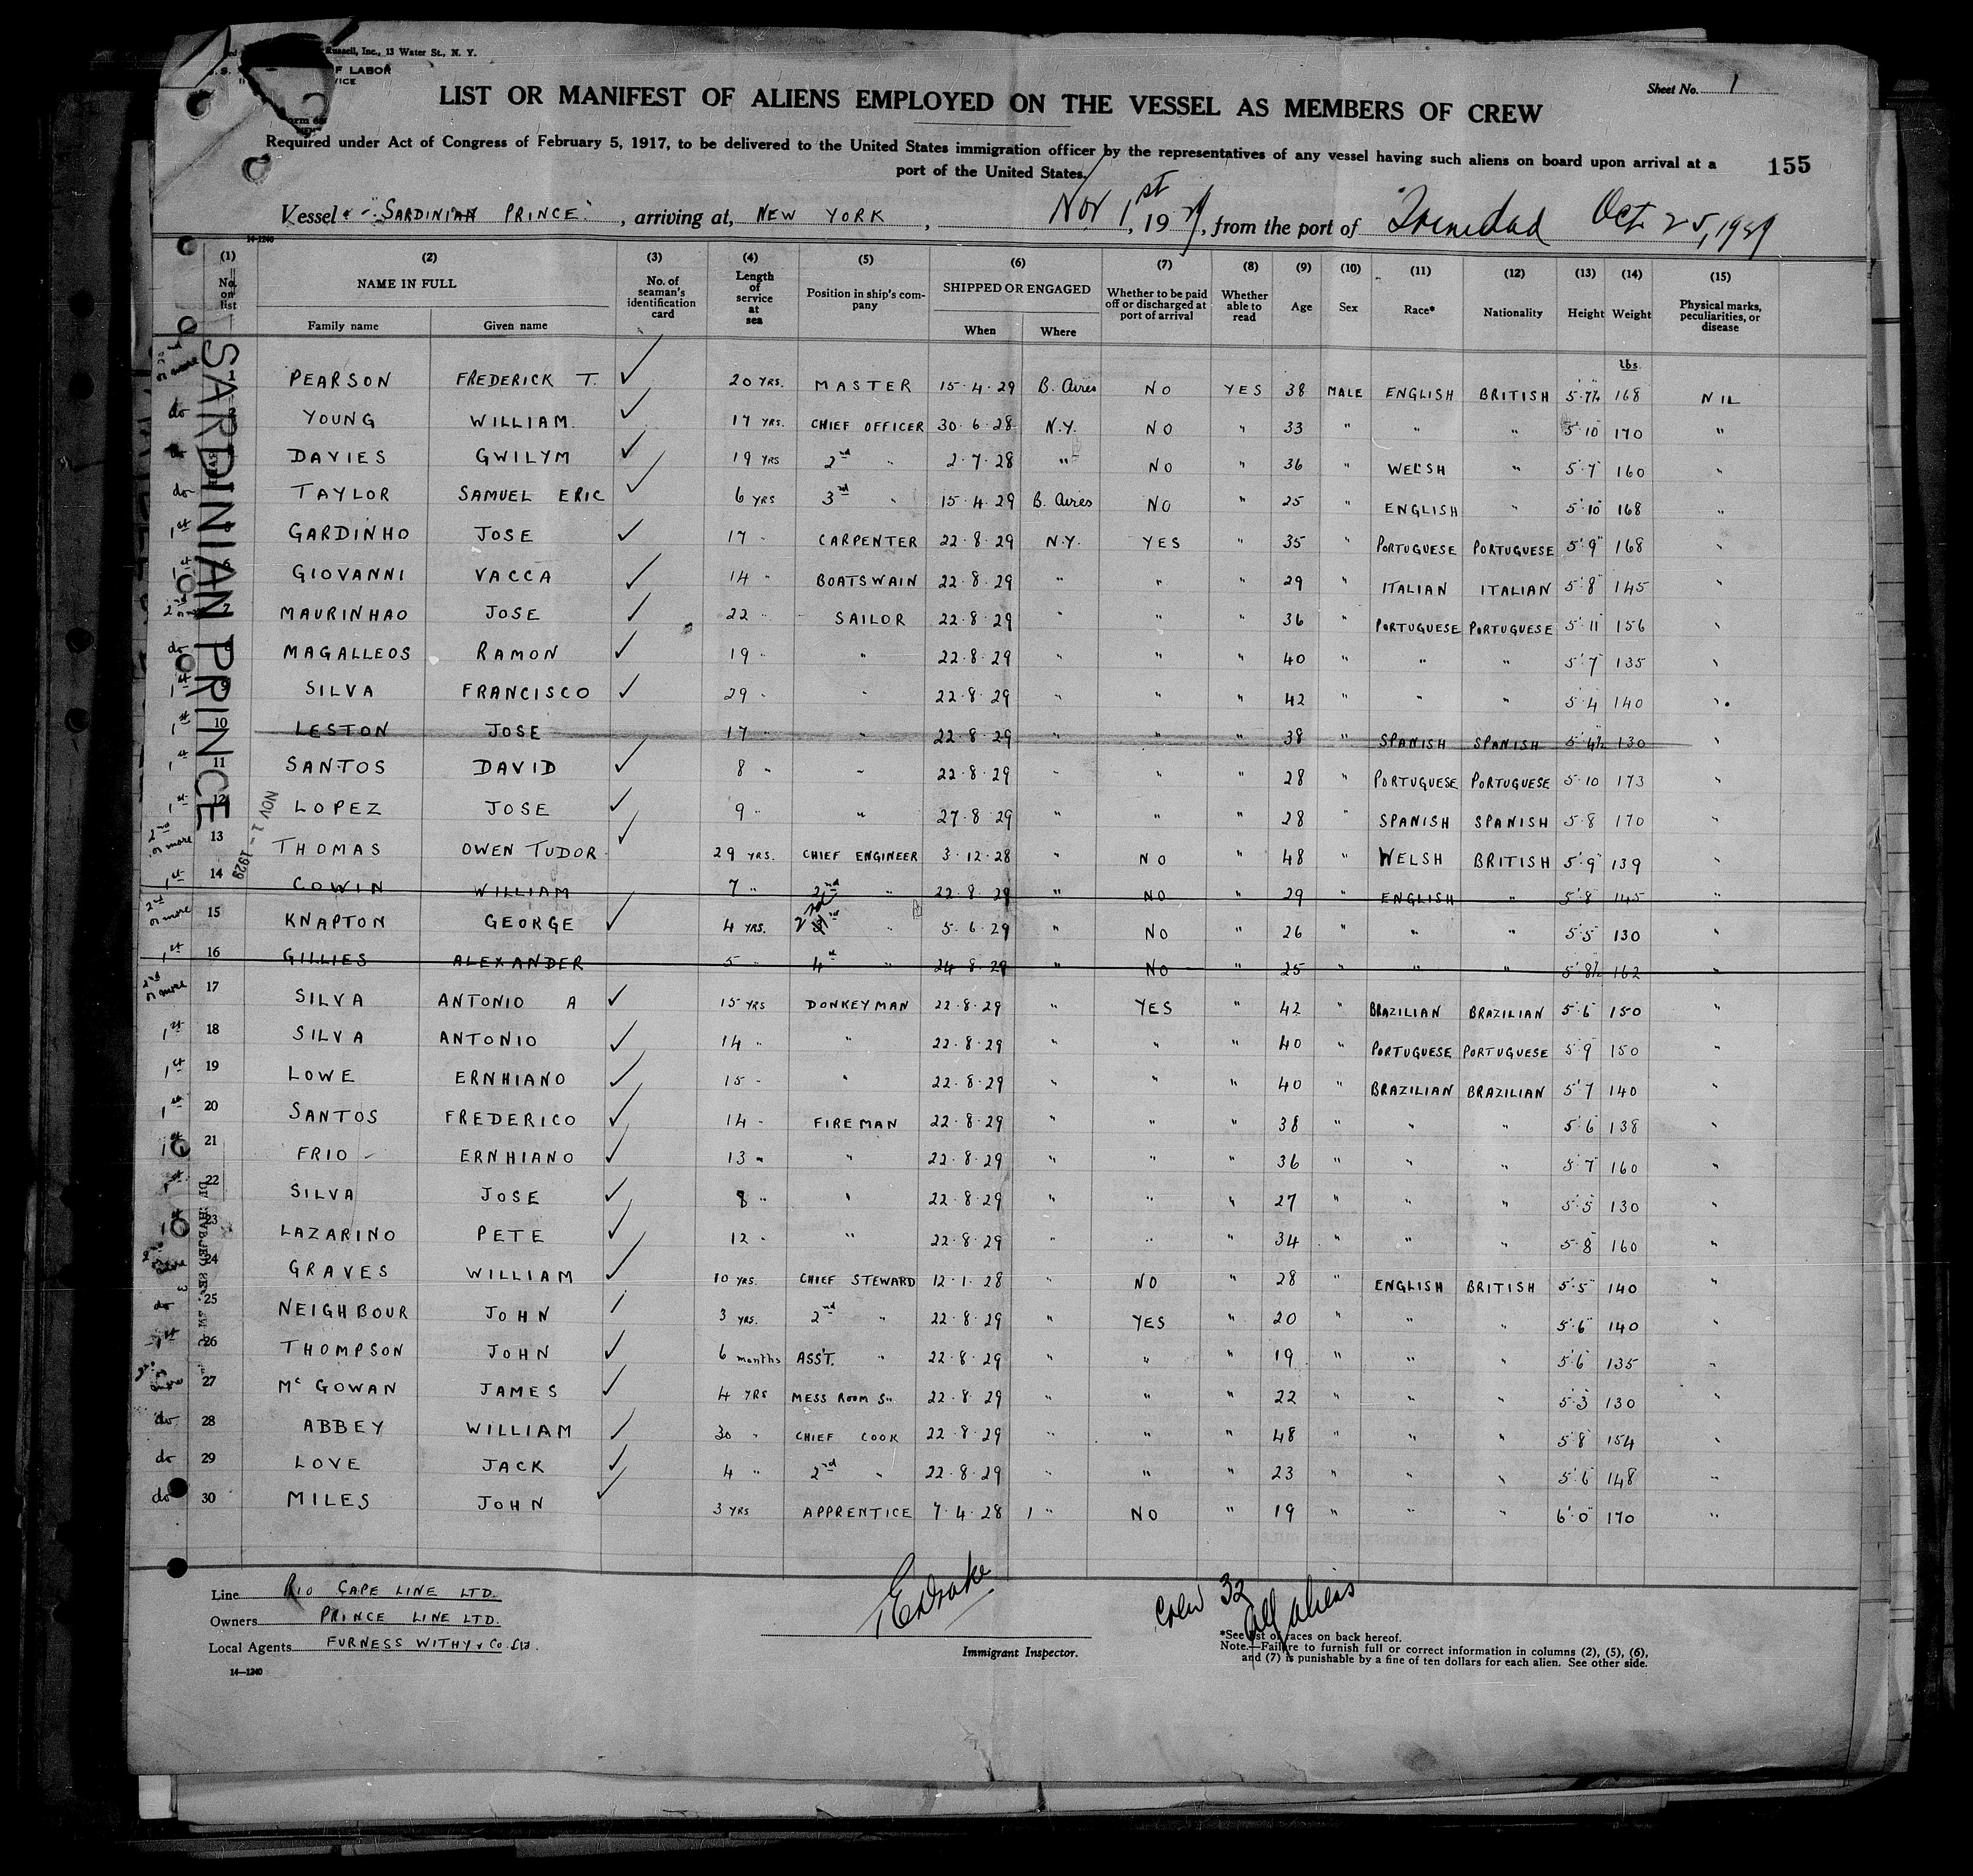 Russell, Inc., 13 Water St., N. Y.
F LABOR
VICE
Sheet No. 1
LIST OR MANIFEST OF ALIENS EMPLOYED ON THE VESSEL AS MEMBERS OF CREW
Required under Act of Congress of February 5, 1917, to be delivered to the United States immigration officer by the representatives of any vessel having such aliens on board upon arrival at a
port of the United States.
155
Vessel "SARDINIAN PRINCE", arriving at, NEW YORK, Nov 1st, 1929, from the port of Trinidad Oct 25, 1929
14-1240
(1) (2) (3) (4) (5) (6) (7) (8) (9) (10) (11) (12) (13) (14) (15)
No. on list NAME IN FULL Family name Given name No. of seaman's identification card Length of service at sea Position in ship's company SHIPPED OR ENGAGED When Where Whether to be paid off or discharged at port of arrival Whether able to read Age Sex Race* Nationality Height Weight Physical marks, peculiarities, or disease
lbs.
1 PEARSON FREDERICK T. ✓ 20 YRS. MASTER 15·4·29 B. Aires NO YES 38 MALE ENGLISH BRITISH 5'7½ 168 NIL
do YOUNG WILLIAM. ✓ 17 YRS. CHIEF OFFICER 30·6·28 N.Y. NO " 33 " " " 5'10 170 "
DAVIES GWILYM ✓ 19 YRS 2nd " 2·7·28 " NO " 36 " WELSH " 5'7 160 "
do TAYLOR SAMUEL ERIC ✓ 6 YRS 3rd " 15·4·29 B. Aires NO " 25 " ENGLISH " 5'10 168 "
1st GARDINHO JOSE ✓ 17 " CARPENTER 22·8·29 N.Y. YES " 35 " PORTUGUESE PORTUGUESE 5'9" 168 "
GIOVANNI VACCA ✓ 14 " BOATSWAIN 22·8·29 " " " 29 " ITALIAN ITALIAN 5'8" 145 "
2nd 7 MAURINHAO JOSE ✓ 22 " SAILOR 22·8·29 " " " 36 " PORTUGUESE PORTUGUESE 5'11" 156 "
do MAGALLEOS RAMON ✓ 19 " " 22·8·29 " " " 40 " " " 5'7 135 "
1st SILVA FRANCISCO ✓ 29 " " 22·8·29 " " " 42 " " " 5'4 140 "
1st 10 LESTON JOSE 17 " " 22·8·29 " " " 38 " SPANISH SPANISH 5'4½ 130 "
1st 11 SANTOS DAVID ✓ 8 " " 22·8·29 " " " 28 " PORTUGUESE PORTUGUESE 5'10 173 "
1st 12 LOPEZ JOSE ✓ 9 " " 27·8·29 " " " 28 " SPANISH SPANISH 5'8 170 "
2nd or more 13 THOMAS OWEN TUDOR ✓ 29 YRS. CHIEF ENGINEER 3·12·28 " NO " 48 " WELSH BRITISH 5'9" 139 "
1st 14 COWIN WILLIAM 7 " 2nd " 22·8·29 " NO " 29 " ENGLISH " 5'8 145 "
2nd or more 15 KNAPTON GEORGE ✓ 4 YRS. 2nd 3rd " 5·6·29 " NO " 26 " " " 5'5 130 "
1st 16 GILLIES ALEXANDER 5 " 4th " 24·8·29 " NO " 25 " " " 5'8½ 162 "
2nd or more 17 SILVA ANTONIO A ✓ 15 YRS DONKEYMAN 22·8·29 " YES " 42 " BRAZILIAN BRAZILIAN 5'6" 150 "
1st 18 SILVA ANTONIO ✓ 14 " " 22·8·29 " " " 40 " PORTUGUESE PORTUGUESE 5'9 150 "
1st 19 LOWE ERNHIANO ✓ 15 " " 22·8·29 " " " 40 " BRAZILIAN BRAZILIAN 5'7 140 "
1st 20 SANTOS FREDERICO ✓ 14 " FIREMAN 22·8·29 " " " 38 " " " 5'6 138 "
1st 21 FRIO ERNHIANO ✓ 13 " " 22·8·29 " " " 36 " " " 5'7 160 "
1st 22 SILVA JOSE ✓ 8 " " 22·8·29 " " " 27 " " " 5'5 130 "
1st 23 LAZARINO PETE ✓ 12 " " 22·8·29 " " " 34 " " " 5'8 160 "
2nd or more 24 GRAVES WILLIAM ✓ 10 YRS. CHIEF STEWARD 12·1·28 " NO " 28 " ENGLISH BRITISH 5'5" 140 "
do 25 NEIGHBOUR JOHN ✓ 3 YRS. 2nd " 22·8·29 " YES " 20 " " " 5'6" 140 "
1st 26 THOMPSON JOHN ✓ 6 months ASS'T. " 22·8·29 " " " 19 " " " 5'6 135 "
2nd or more 27 McGOWAN JAMES ✓ 4 YRS MESS ROOM S" 22·8·29 " " " 22 " " " 5'3 130 "
do 28 ABBEY WILLIAM ✓ 30 " CHIEF COOK 22·8·29 " " " 48 " " " 5'8 154 "
do 29 LOVE JACK ✓ 4 " 2nd " 22·8·29 " " " 23 " " " 5'6 148 "
do 30 MILES JOHN ✓ 3 YRS APPRENTICE 7·4·28 " NO " 19 " " " 6'0 170 "
SARDINIAN PRINCE
NOV 1 - 1929
Line RIO CAPE LINE LTD.
Owners PRINCE LINE LTD.
Local Agents FURNESS WITHY & Co. Ltd.
14—1240
E Drake
Immigrant Inspector.
Crew 32
all aliens
*See list of races on back hereof.
Note.—Failure to furnish full or correct information in columns (2), (5), (6),
and (7) is punishable by a fine of ten dollars for each alien. See other side.